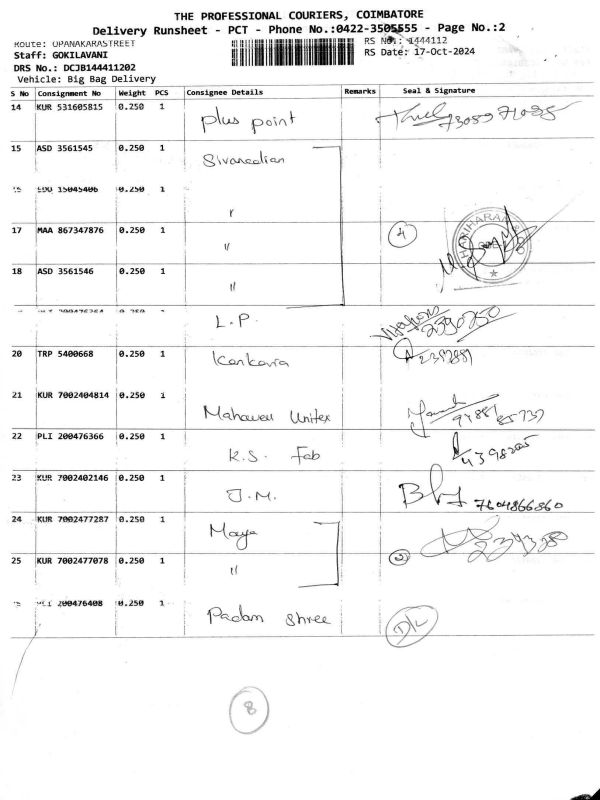 THE PROFESSIONAL COURIERS, COIMBATORE
Delivery Runsheet - PCT - Phone No.:0422-3505555 - Page No.:2
Route: OPANAKARASTREET
RS No.: 1444112
Staff: GOKILAVANI
RS Date: 17-Oct-2024
DRS No.: DCJB144411202
Vehicle: Big Bag Delivery
S No Consignment No Weight PCS Consignee Details Remarks Seal & Signature
14 KUR 531605815 0.250 1
Plus point
15 ASD 3561545 0.250 1
Sivanedian
EDO 15045406 0.250 1
"
17 MAA 867347876 0.250 1
" 4
18 ASD 3561546 0.250 1
"
PLI 200476364 0.250 1
L.P. 2390250
20 TRP 5400668 0.250 1
Kankaria
21 KUR 7002404814 0.250 1
Mahaveer Unitex
94881 85737
22 PLI 200476366 0.250 1
K.S. Fab 4398205
23 KUR 7002402146 0.250 1
J.M. 7604866860
24 KUR 7002477287 0.250 1
Maya
25 KUR 7002477078 0.250 1
" 2
PLI 200476408 0.250 1
Padam Shree D/L
8